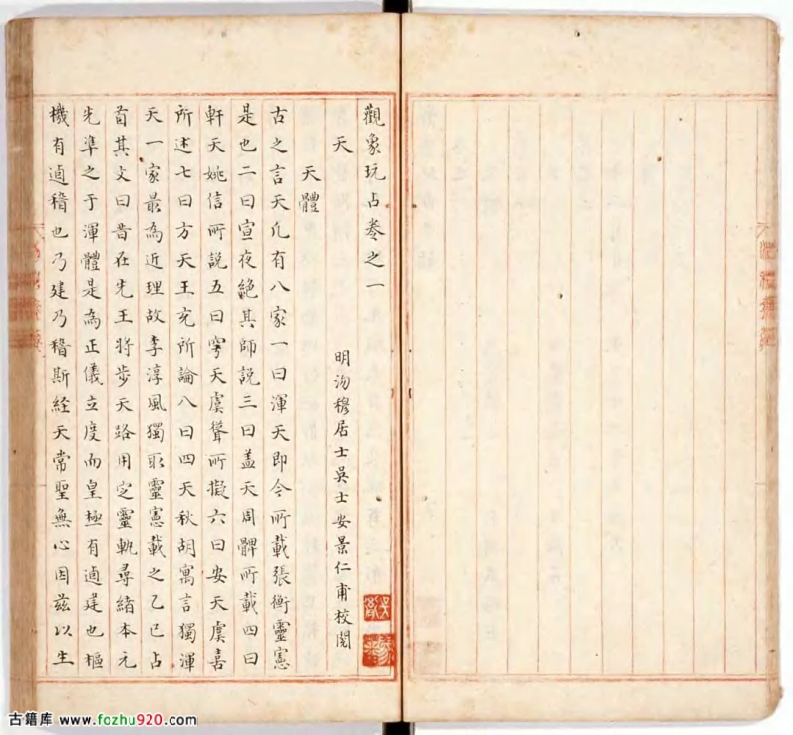 觀象玩占卷之一
明沕穆居士吳士安景仁甫校閱
天
天體
古之言天凡有八家一曰渾天即今所載張衡靈憲
是也二曰宣夜絕其師說三曰盖天周髀所載四曰
軒天姚信所說五曰穹天虞聳所擬六曰安天虞喜
所述七曰方天王充所論八曰四天秋胡寓言獨渾
天一家最為近理故李淳風獨取靈憲載之乙巳占
首其文曰昔在先王將步天路用定靈軌尋緒本元
先準之于渾體是為正儀立度而皇極有逌建也樞
機有逌稽也乃建乃稽斯經天常聖無心因兹以生
古籍库 www.fozhu920.com